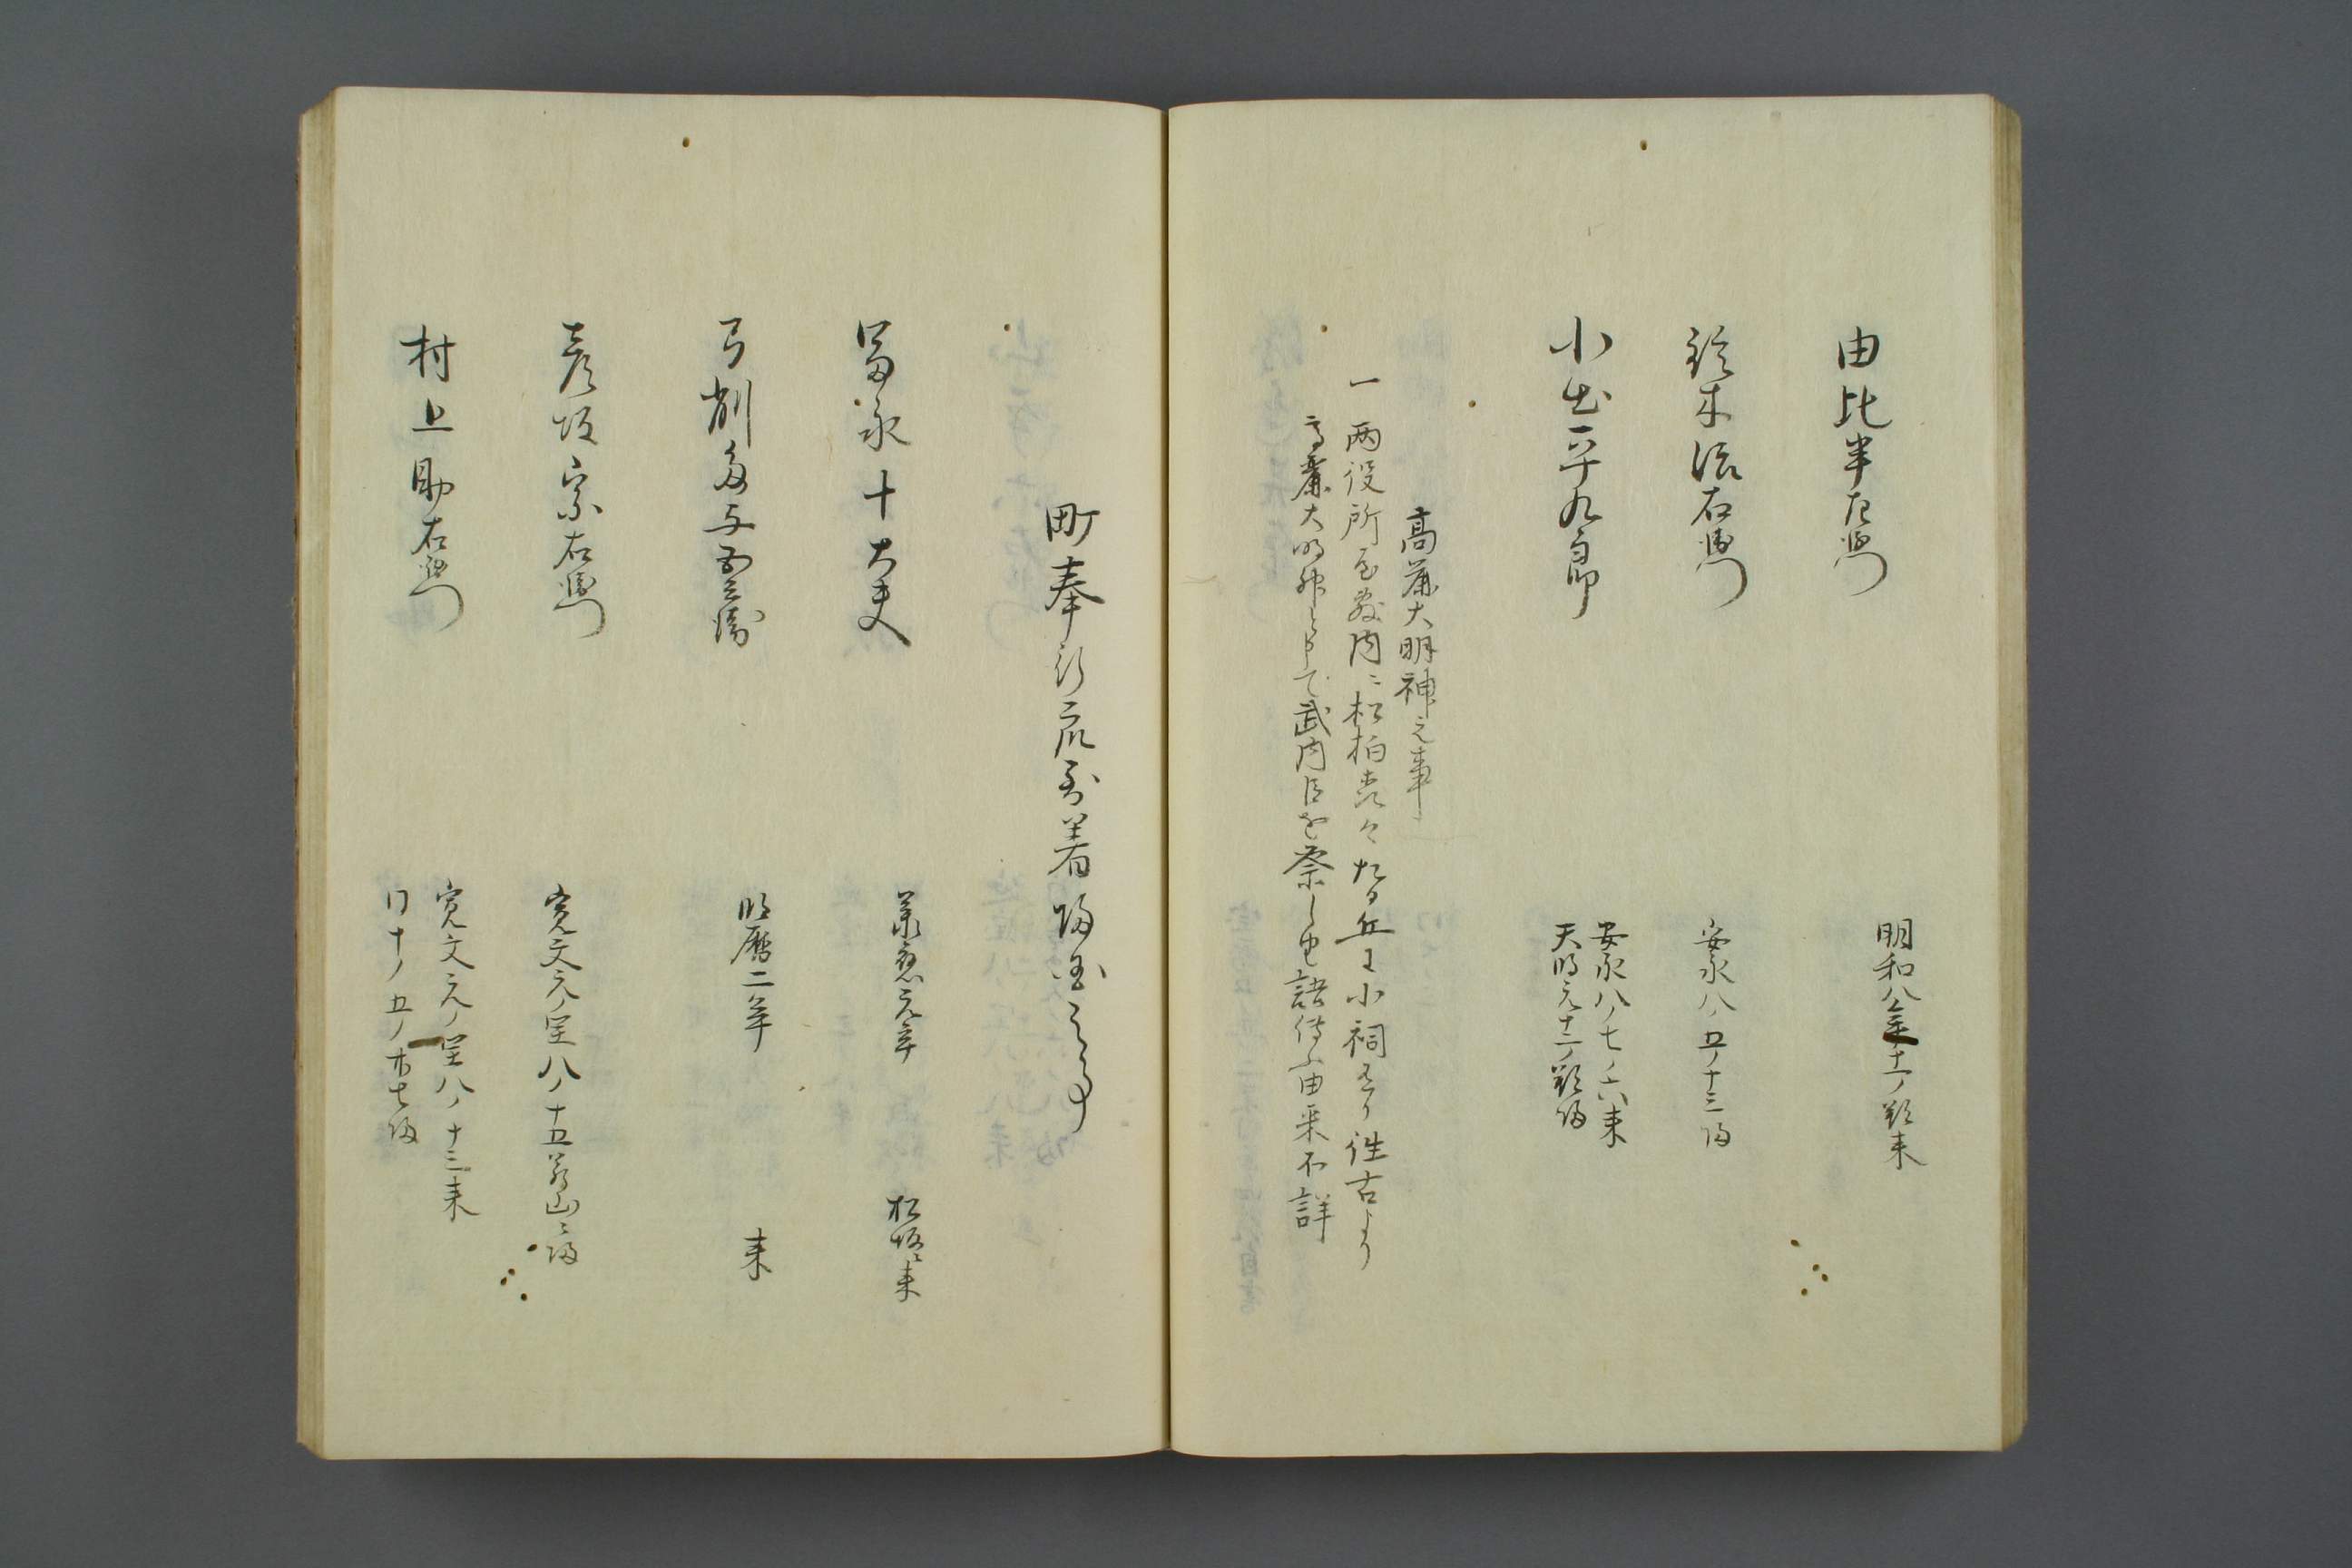 由比半左衛門
明和八年十一ノ朔来
鈴木源右衛門
安永八ノ五ノ十三帰
小出平九郎
安永八ノ七ノ六来
天明元ノ十二ノ朔帰
高麻大明神之事
一両役所屋敷内ニ松柏森々たる丘に小祠有り往古より
高麻大明神と申て武内臣を祭しや語伝ふ由来不詳
町奉行衆到着帰国之事
冨永十太夫
承応元年
松坂ゟ来
弓削多与五兵衛
明暦二年
来
彦坂宗右衛門
寛文元ノ閏八ノ十五若山ニ帰
村上助右衛門
寛文元ノ閏八ノ十三来
同十ノ五ノ廿七帰